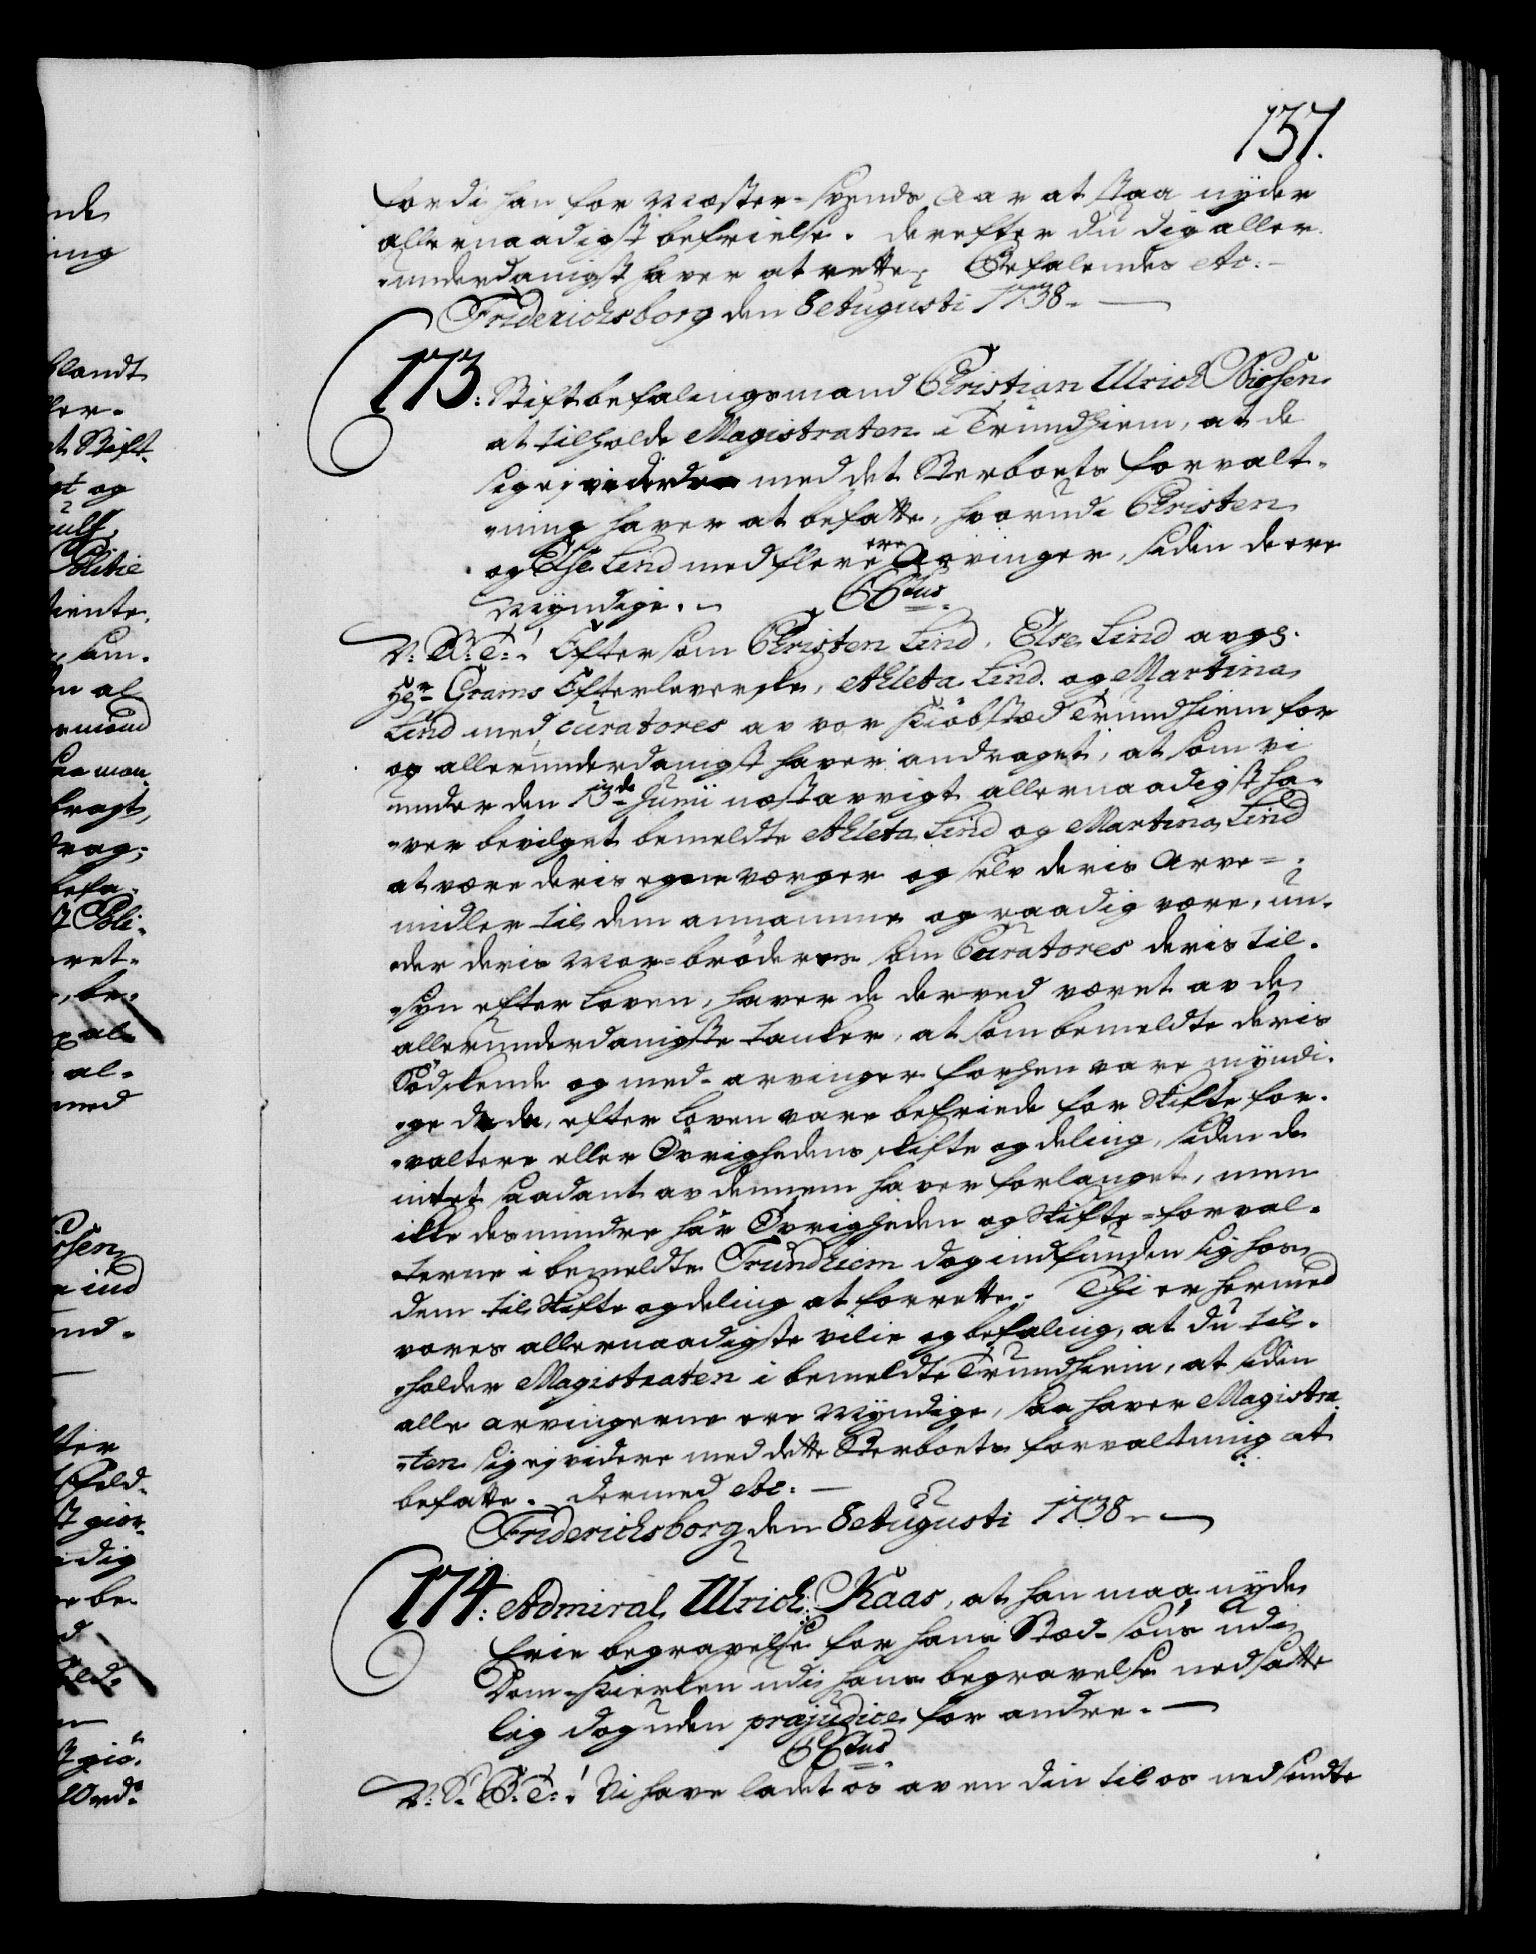 137.
fordi han for Mæster-svends Aar at staa nyder
allernaadigst befrielse. derefter du dig aller-
underdanigst haver at rette. Befalendes etc:
Friderichsborg den 8 Augusti 1738.
173: Stiftbefalingsmand Christian Ulrich Nissen
at tilholde Magistraten i Trundhiem, at de
sig ej videre med det Sterboets forvalt-
ning haver at befatte, hvorudi Christen
og Else Lind med flere ere Arvinger, siden de ere
Myndige.
C6tus.
V: G: T:! Eftersom Christen Lind, Else Lind avgs.
Hr. Grams Efterleverske, Ahleta Lind og Martina
Lind med curatores av vor Kiöbstæd Trundhiem for
os allerunderdanigst haver andraget, at som vi
under den 13de Junii næstavvigt allernaadigst ha-
ver bevilget bemeldte Ahleta Lind og Martina Lind
at være deris egene værger og selv deris Arve-
midler til dem annamme og raadig være, un-
der deris Mor-bröderes som Curatores deris til-
syn efter Loven, haver de derved været av de
allerunderdanigste tanker, at som bemeldte deris
Södskende og med-arvinger forhen vare myndi-
ge de da, efter Loven vare befriede for Skifte for-
valtere eller Övrighedens skifte og deling, siden de
intet saadant av dennem haver forlanget, men
ikke desmindre har Övrigheden og Skifte-forval-
terne i bemeldte Trundhiem dog indfunden sig hos
dem til Skifte og deling at forrette. Thi er hermed
vores allernaadigste vilie og befaling, at du til-
holder Magistraten i bemeldte Trundhiem, at siden
alle arvingerne ere Myndige, saa haver Magistra-
ten sig ej videre med dette Sterboets forvaltning at
befatte. Dermed etc:
Friderichsborg den 8 Augusti 1738.
174: Admiral Ulrich Kaas, at han maa nyde
frie begravelse for hans Stæd-söns udi
Dom-Kierken udi hans begravelse nedsatte
lig dog uden præjudice for andre.
C6tus.
V: S: G: T:! Vi have ladet os av en din til os nedsendte